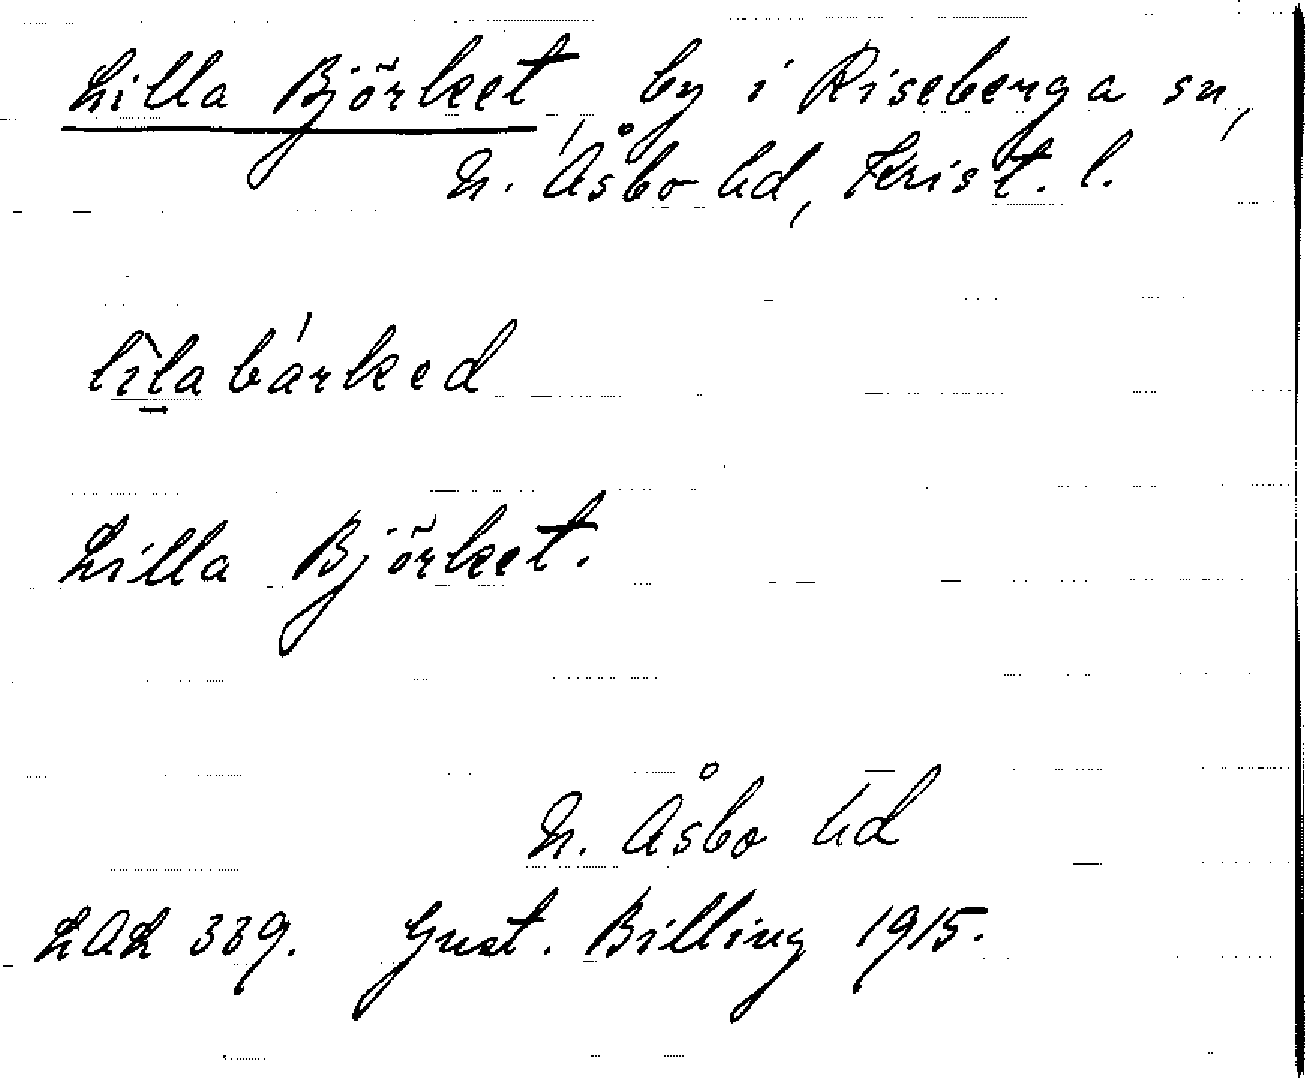 Lilla Björket by i Riseberga sn,
N. Åsbo hd, Krist. l.
lìlabárked
Lilla Björket.
N. Åsbo hd
LAL 339. Gust. Billing 1915.